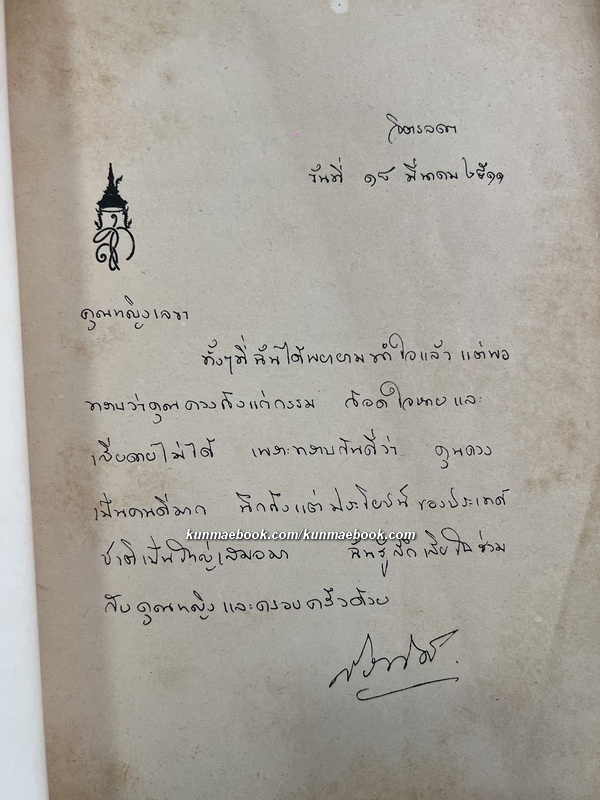 จิตรลดา
วันที่ ๑๘ มีนาคม ๒๕๑๑
คุณหญิงเลขา
ทั้งๆที่ฉันได้พยายามทำใจแล้ว แต่พอ
ทราบว่าคุณดวงถึงแก่กรรม ก็อดใจหายและ
เสียดายไม่ได้ เพราะทราบกันดีว่า คุณดวง
เป็นคนดีมาก นึกถึงแต่ประโยชน์ของประเทศ
kunmaebook.com/kunmaebook.com
ชาติเป็นใหญ่เสมอมา ฉันรู้สึกเสียใจร่วม
กับคุณหญิงและครอบครัวด้วย